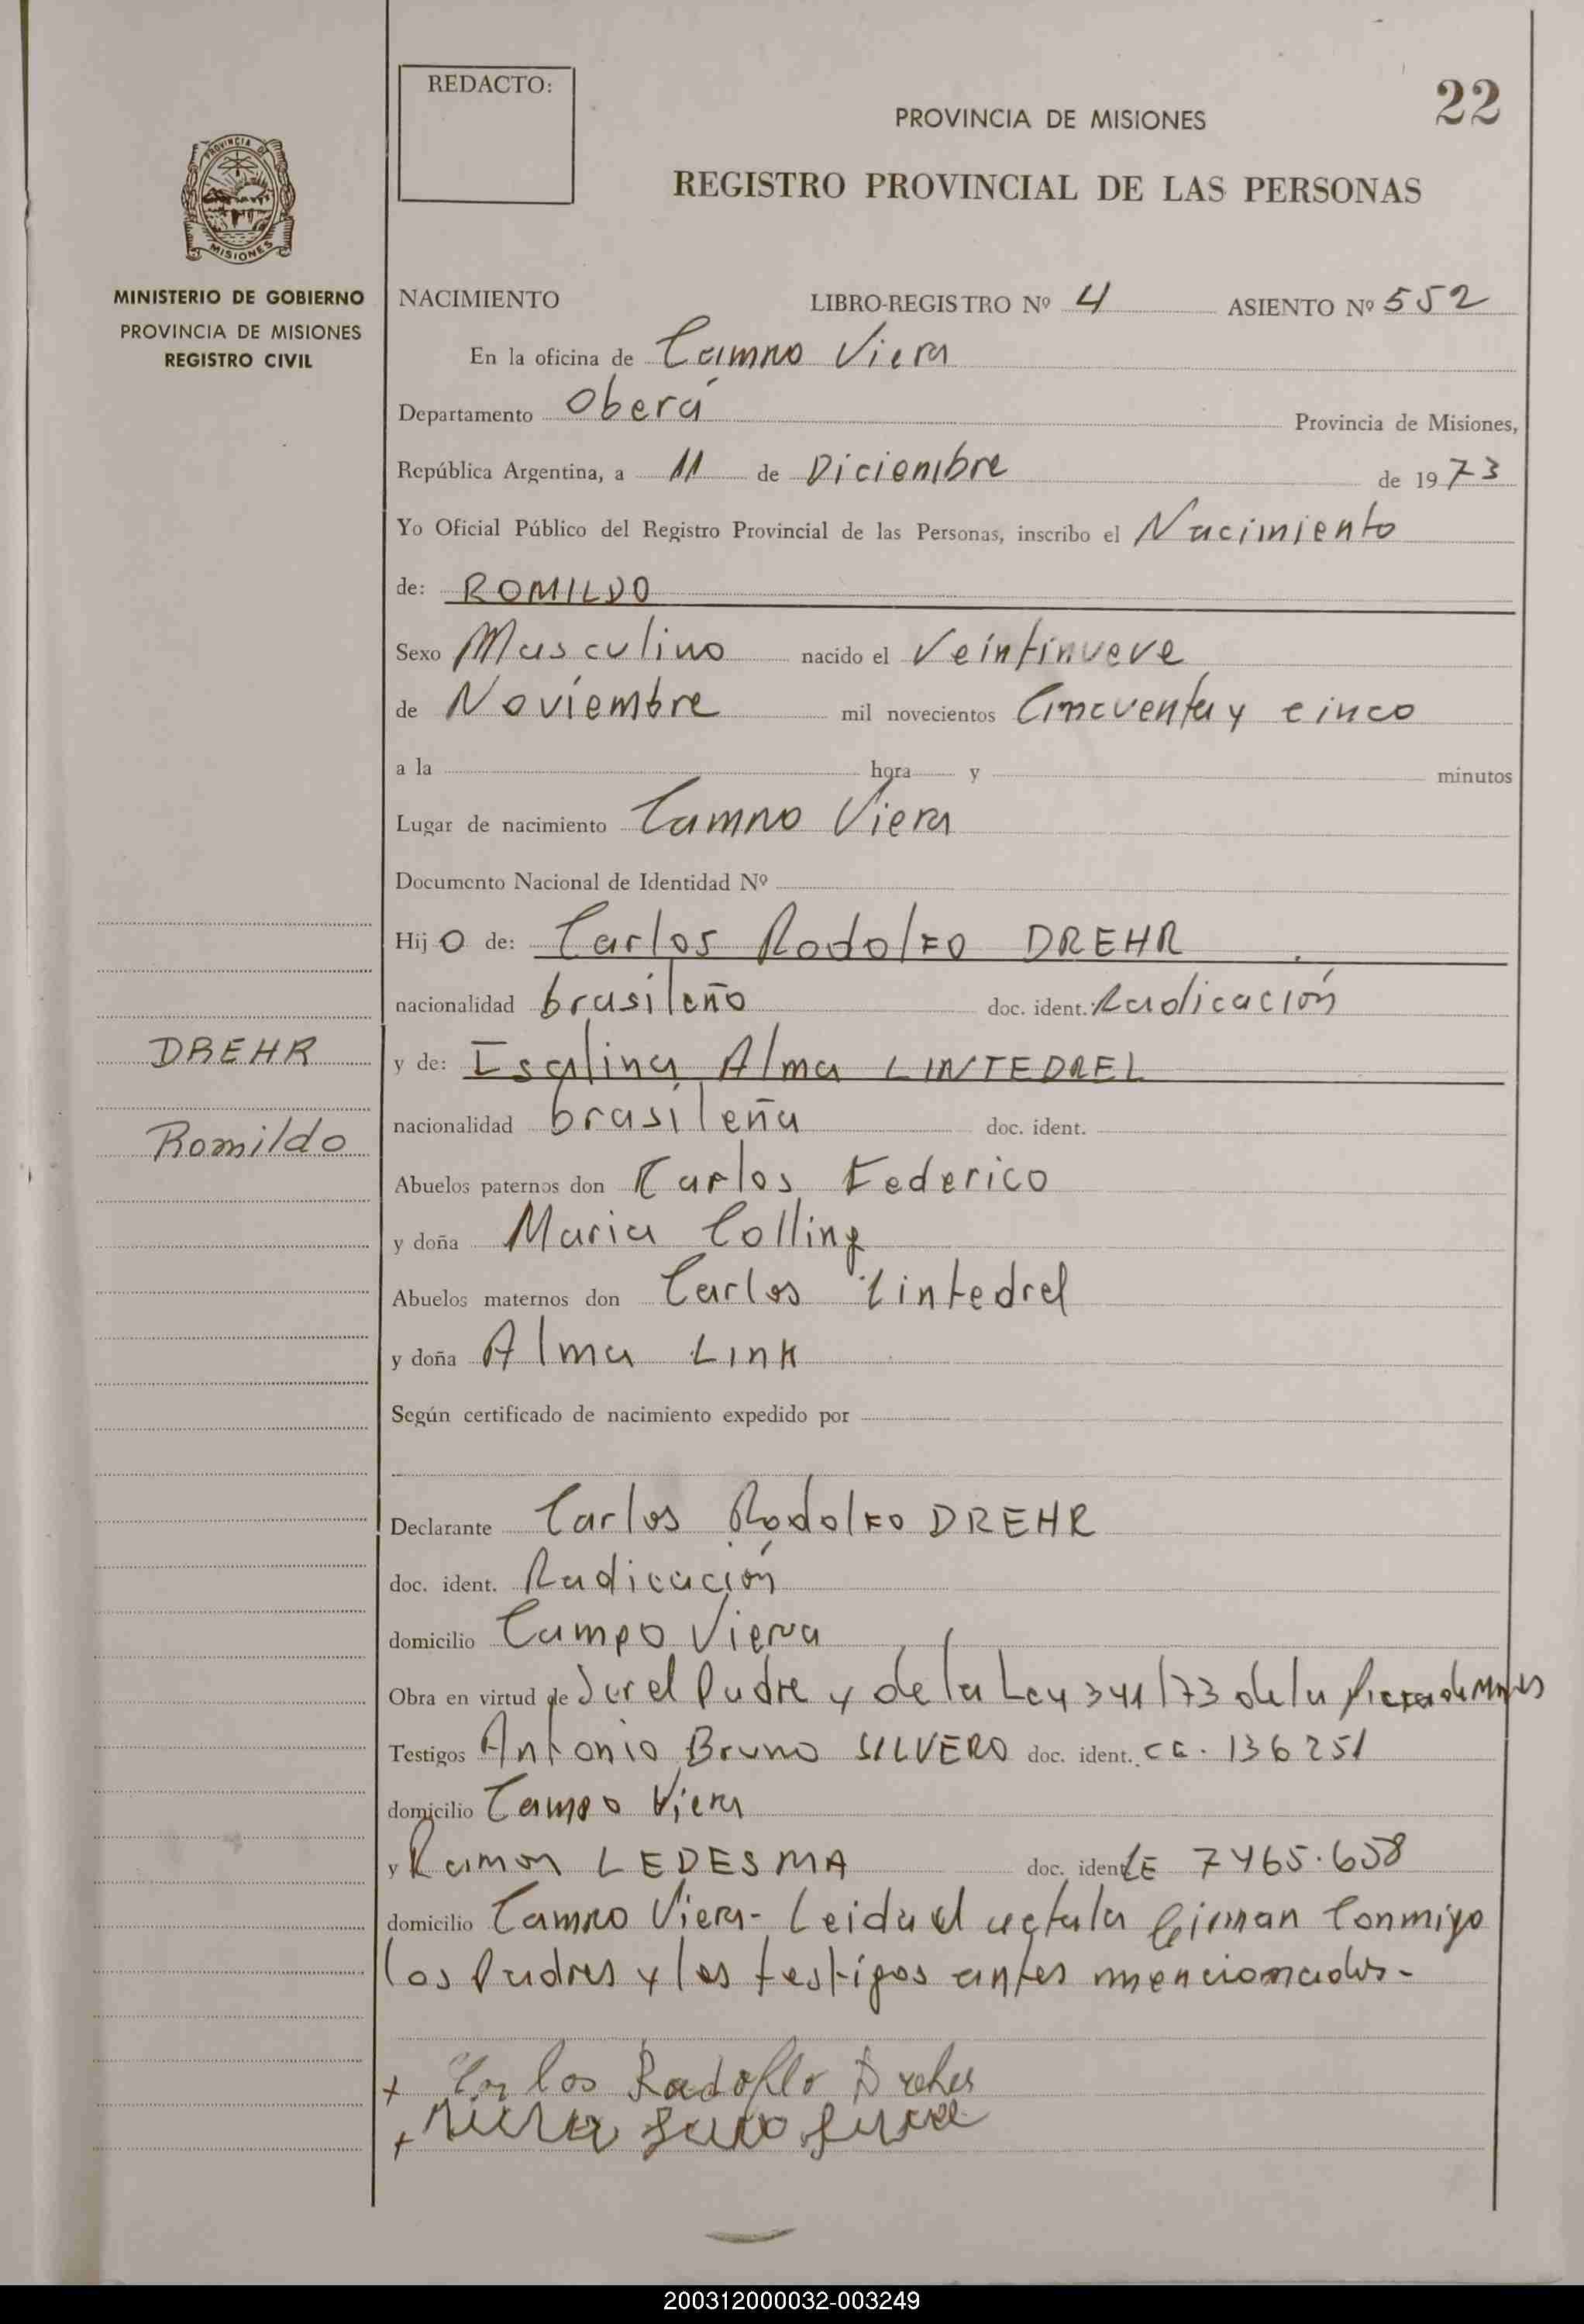 REDACTO:
22
PROVINCIA DE MISIONES
REGISTRO PROVINCIAL DE LAS PERSONAS
PROVINCIA DE
MISIONES
MINISTERIO DE GOBIERNO
PROVINCIA DE MISIONES
REGISTRO CIVIL
NACIMIENTO LIBRO-REGISTRO Nº 4 ASIENTO Nº 552
En la oficina de Campo Viera
Departamento Oberá Provincia de Misiones,
República Argentina, a 11 de Diciembre de 1973
Yo Oficial Público del Registro Provincial de las Personas, inscribo el Nacimiento
de: ROMILDO
Sexo Masculino nacido el Veintinueve
de Noviembre mil novecientos Cincuenta y cinco
a la hora y minutos
Lugar de nacimiento Campo Viera
Documento Nacional de Identidad Nº
Hijo de: Carlos Rodolfo DREHR
nacionalidad brasileño doc. ident. Radicación
DREHR
y de: Isalina Alma LINTEDREL
nacionalidad brasileña doc. ident.
Romildo
Abuelos paternos don Carlos Federico
y doña Maria Colling
Abuelos maternos don Carlos Lintedrel
y doña Alma Link
Según certificado de nacimiento expedido por
Declarante Carlos Rodolfo DREHR
doc. ident. Radicación
domicilio Campo Viera
Obra en virtud de Ser el Padre y de la Ley 341/73 de la
Testigos Antonio Bruno SILVERO doc. ident. CE. 136251
domicilio Campo Viera
y Ramon LEDESMA doc. ident. LE 7465.658
domicilio Campo Viera- Leida el acta la firman Conmigo
los Padres y los testigos antes mencionados-
+ Carlos Radoflo Dreher
+
200312000032-003249